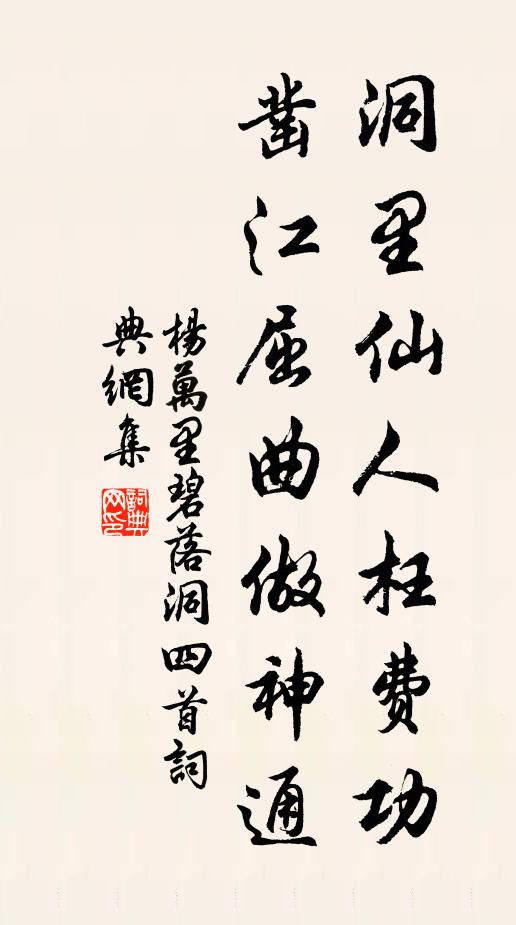 洞里仙人枉费功
凿江屈曲做神通
楊萬里碧落洞四首詞
典網集
詞典网印